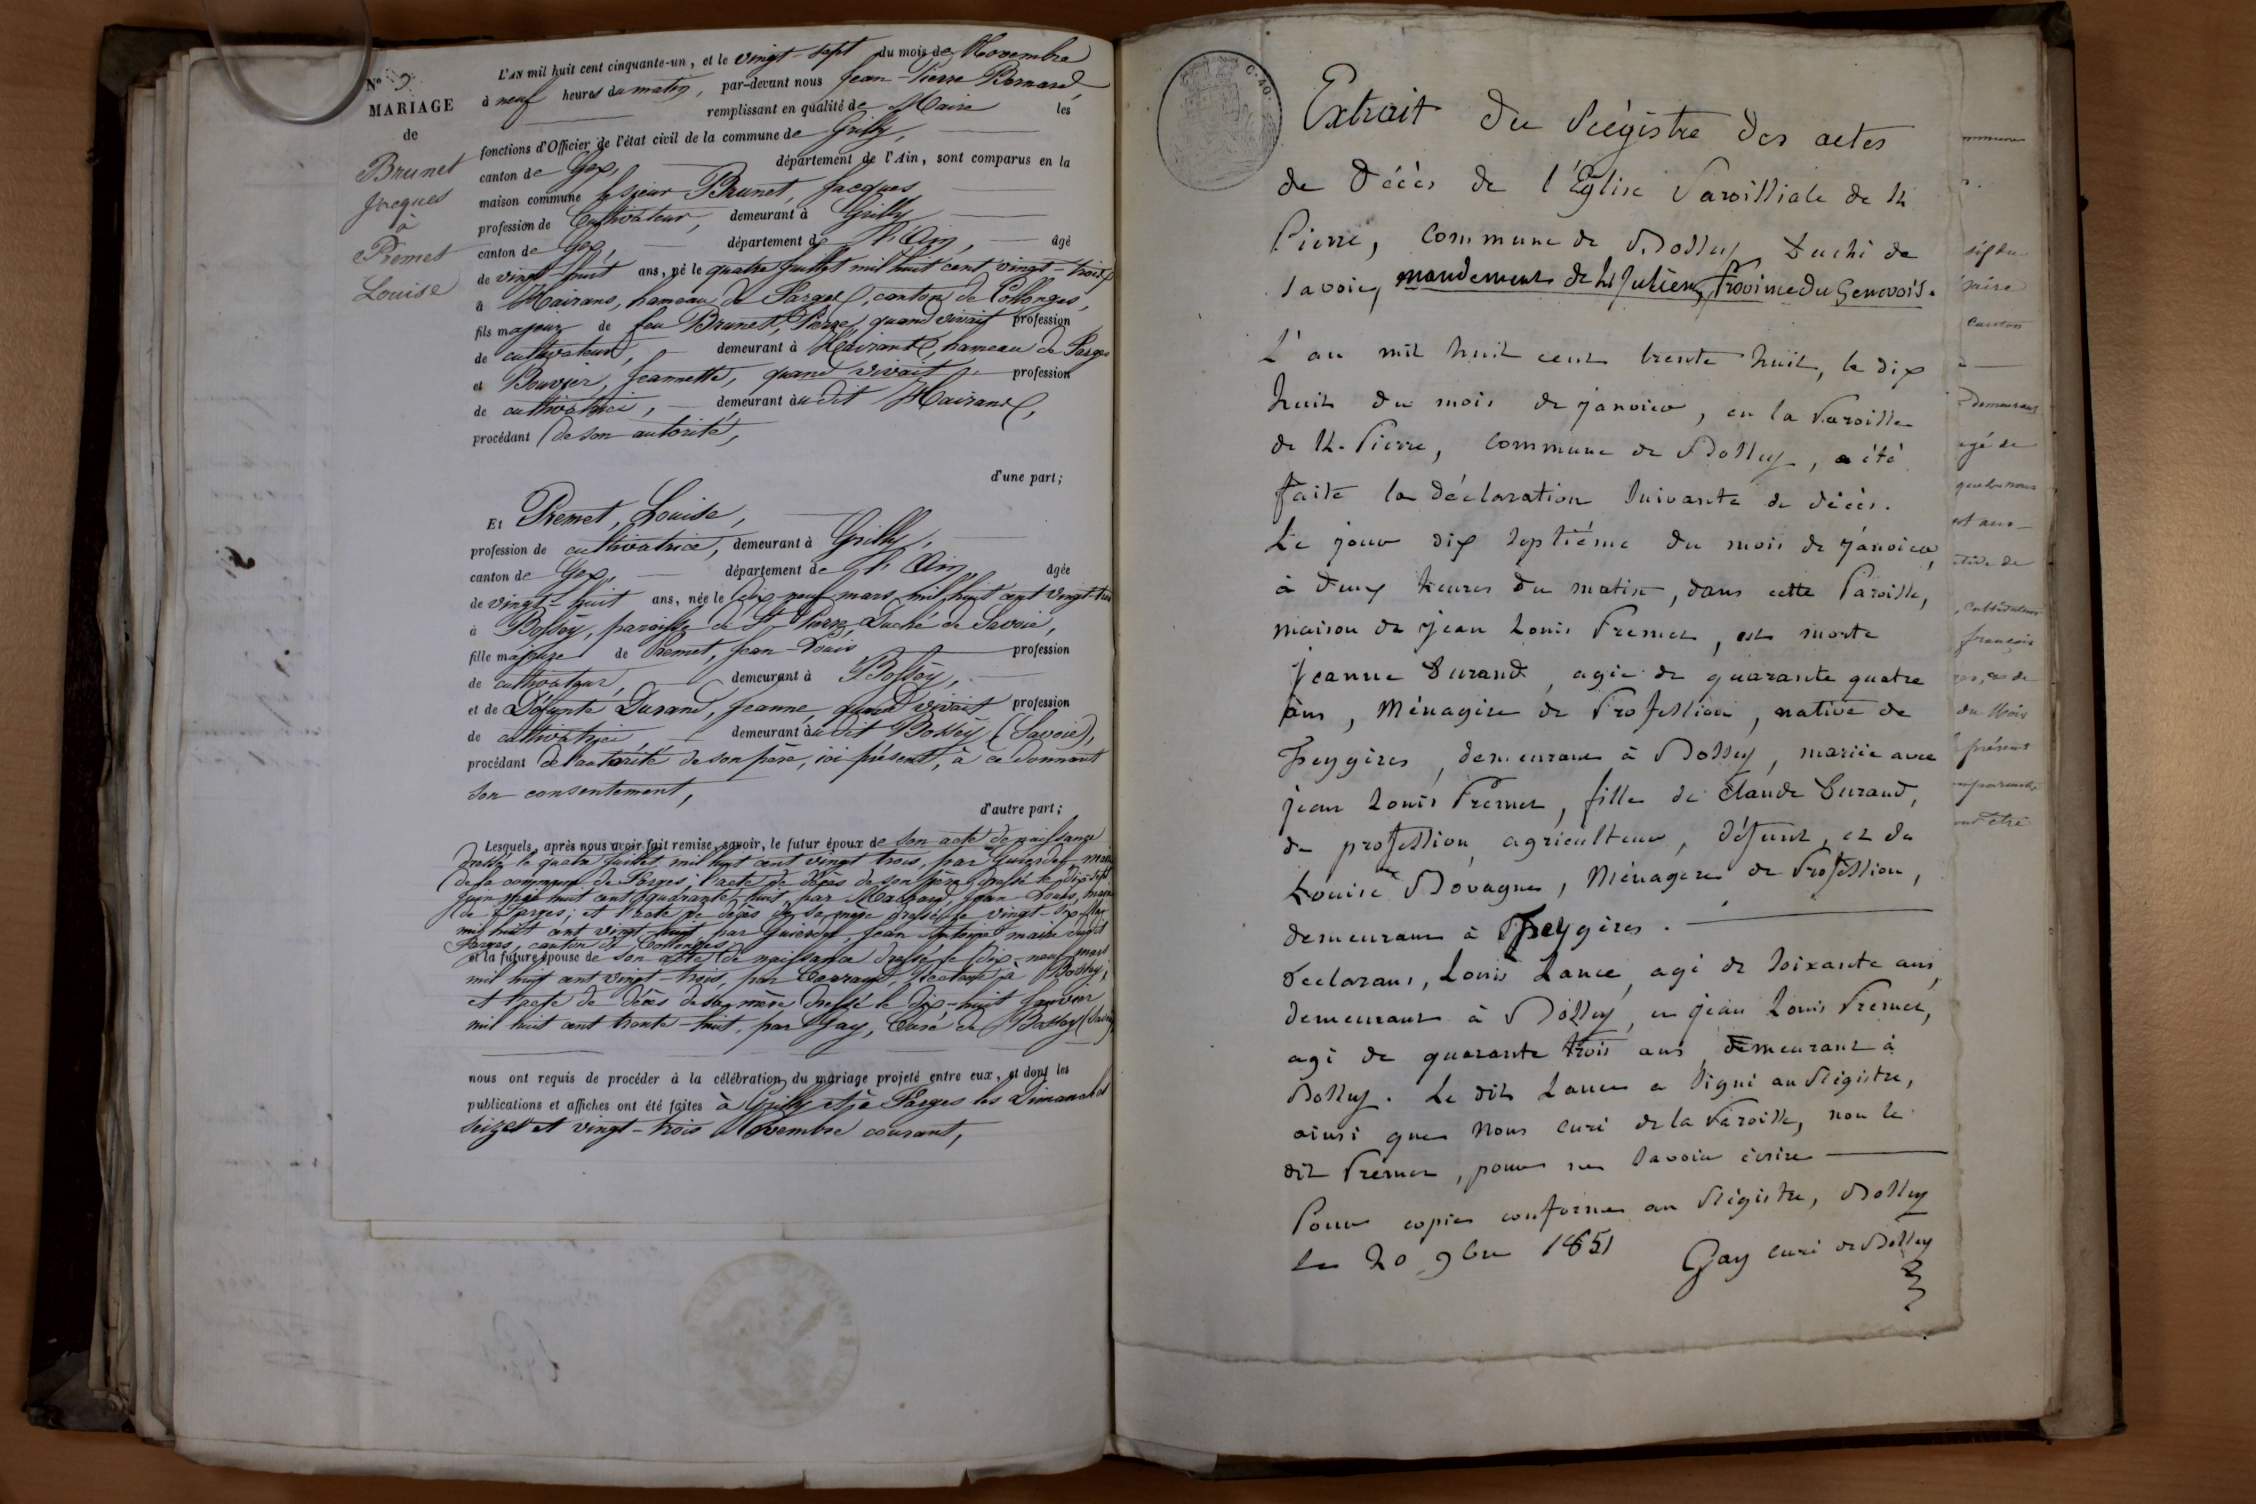 N° 9
MARIAGE
de
Brunet
Jacques
à
Premet
Louise
L'AN mil huit cent cinquante-un, et le vingt-sept du mois de Novembre
à neuf heures du matin, par-devant nous Jean-Pierre Bernard,
remplissant en qualité de Maire les
fonctions d'Officier de l'état civil de la commune de Grilly,
canton de Gex, département de l'Ain, sont comparus en la
maison commune le sieur Brunet, Jacques
profession de Cultivateur, demeurant à Grilly
canton de Gex, département de l'Ain, âgé
de vingt-huit ans, né le quatre Juillet mil huit cent vingt-trois
à Mairans, hameau de Farges, canton de Collonges,
fils majeur de feu Brunet, Pierre, quand vivait profession
de cultivateur, demeurant à Mairans, hameau de Farges
et Bouvier, Jeannette, quand vivait profession
de cultivatrice, demeurant au dit Mairans,
procédant de son autorité,
d'une part;
Et Premet, Louise,
profession de cultivatrice, demeurant à Grilly,
canton de Gex, département de l'Ain âgée
de vingt-huit ans, née le dix-neuf mars mil huit cent vingt-trois
à Bossey, paroisse de St Pierre Duché de Savoie,
fille majeure de Premet, Jean-Louis profession
de cultivateur, demeurant à Bossey,
et de Défunte Durand, Jeanne, quand vivait profession
de cultivatrice demeurant au dit Bossey (Savoie),
procédant de l'autorité de son père, ici présent, à ce donnant
son consentement,
d'autre part;
Lesquels, après nous avoir fait remise, savoir, le futur époux de son acte de naissance
dressé le quatre Juillet mil huit cent vingt trois, par maire
de la commune de Farges; l'acte de décès de son père dressé le dix-sept
Juin mil huit cent quarante huit, par Jean Louis, maire
de Farges; et l'acte de décès de sa mère dressé le vingt-six
mil huit cent vingt huit par Jean Antoine maire dudit
Farges, canton de Collonges
et la future épouse de son acte de naissance dressé le dix-neuf mars
mil huit cent vingt trois, par à Bossey;
et l'acte de décès de sa mère dressé le dix-huit Janvier
mil huit cent trente-huit, par Gay, Curé de Bossey (Savoie)
nous ont requis de procéder à la célébration du mariage projeté entre eux, et dont les
publications et affiches ont été faites à Grilly et à Farges les Dimanches
seize et vingt-trois Novembre courant,
Extrait du Régistre des actes
de Décès de l'Église Paroissiale de St
Pierre, Commune de Bossey, Duché de
Savoie, mandement de St Julien, Province du Genevois.
L'an mil huit cent trente huit, le dix
huit du mois de janvier, en la Paroisse
de St. Pierre, Commune de Bossey, a été
faite la déclaration suivante de décès.
Le jour dix septième du mois de janvier,
à deux heures du matin, dans cette Paroisse,
maison de jean Louis Premet, est morte
Jeanne Durand, agée de quarante quatre
ans, Ménagère de Profession, native de
Feygères, demeurant à Bossey, mariée avec
jean Louis Premet, fille de Claude Durand,
de profession agriculteur, défunt, et de
Louise Bovagne, Ménagère de Profession,
demeurant à Feygères.
Declarans, Louis Lance, agé de soixante ans,
demeurant à Bossey, et jean Louis Premet,
agé de quarante trois ans, demeurant à
Bossey. Le dit Lance a signé au Régistre,
ainsi que Nous curé de la Paroisse, non le
dit Premet, pour ne savoir écrire
Pour copie conforme au Régistre, Bossey
le 20 9bre 1851 Gay curé de Bossey
canton
demeurant
agé de
cultivateur
françois
du Mois
présent
être